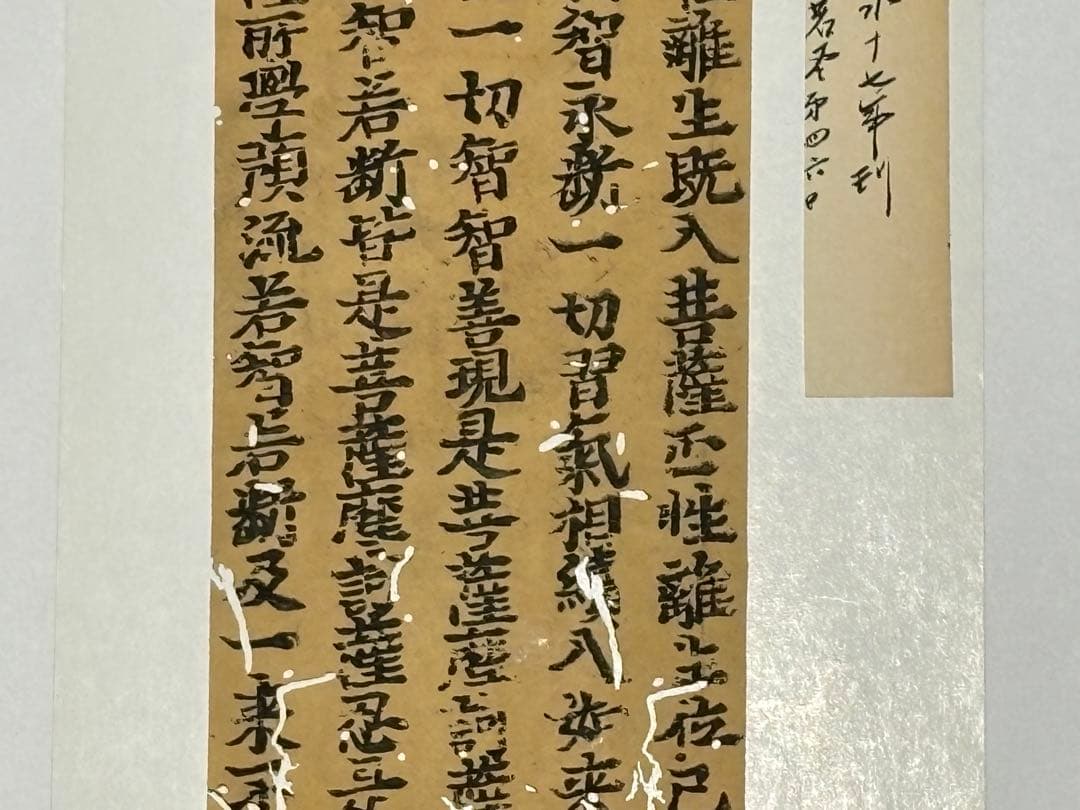 十七年刊
若卷第四六
離生既入菩薩正性離生位已
智永斷一切習氣相續入來
一切智智善現是菩薩摩訶薩
智若斷皆是菩薩摩訶薩忍
所學預流若智若斷及一來